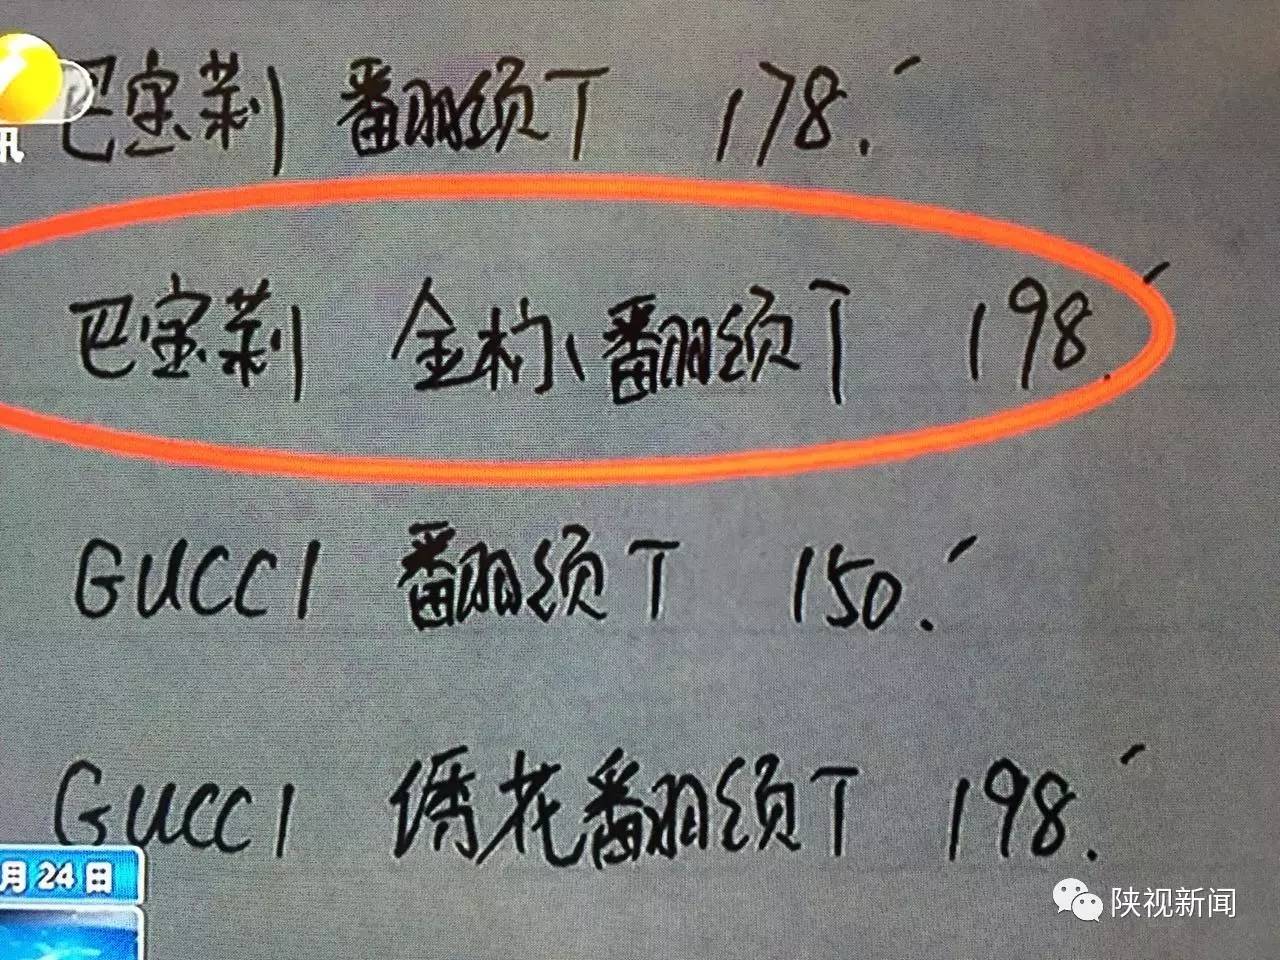 巴宝莉 翻领T 178.
讯
巴宝莉 金标翻领T 198.
GUCCI 翻领T 150.
GUCCI 绣花翻领T 198.
月24日
陕视新闻